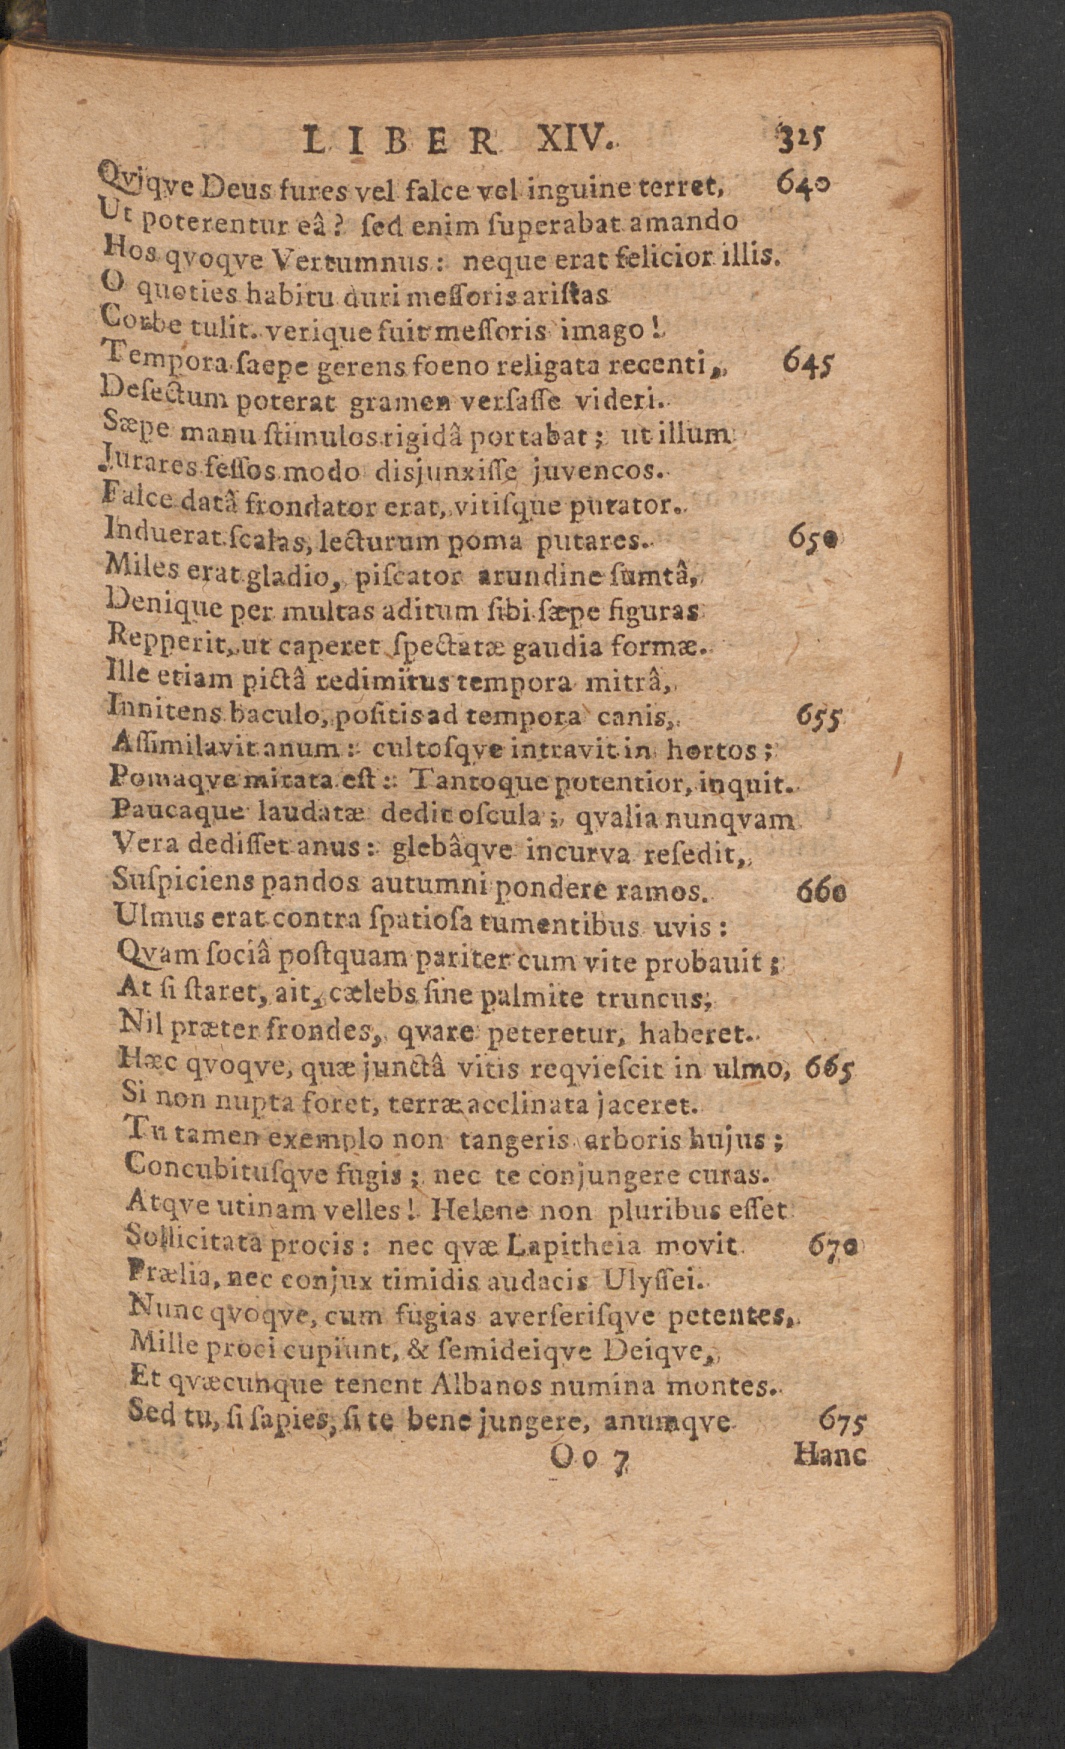 LIBER XIV. 325
Qviqve Deus fures vel falce vel inguine terret, 640
Ut poterentur eâ? ſed enim ſuperabat amando
Hos qvoqve Vertumnus: neque erat felicior illis.
O quoties habitu duri meſſoris ariſtas
Corbe tulit. verique fuit meſſoris imago!
Tempora ſaepe gerens foeno religata recenti, 645
Deſectum poterat gramen verſaſſe videri.
Sæpe manu ſtimulos rigidâ portabat; ut illum
Jurares feſſos modo disjunxiſſe juvencos.
Falce datâ frondator erat, vitiſque putator.
Induerat ſcalas, lecturum poma putares. 650
Miles erat gladio, piſcator arundine ſumtâ,
Denique per multas aditum ſibi ſæpe figuras
Repperit, ut caperet ſpectatæ gaudia formæ.
Ille etiam pictâ redimitus tempora mitrâ,
Innitens baculo, poſitis ad tempora canis, 655
Aſſimilavit anum: cultoſqve intravit in hortos;
Pomaqve mirata eſt: Tantoque potentior, inquit.
Paucaque laudatæ dedit oſcula; qvalia nunqvam
Vera dediſſet anus: glebâqve incurva reſedit,
Suſpiciens pandos autumni pondere ramos. 660
Ulmus erat contra ſpatioſa tumentibus uvis:
Qvam ſociâ poſtquam pariter cum vite probauit;
At ſi ſtaret, ait, cælebs ſine palmite truncus,
Nil præter frondes, qvare peteretur, haberet.
Hæc qvoqve, quæ junctâ vitis reqvieſcit in ulmo, 665
Si non nupta foret, terræ acclinata jaceret.
Tu tamen exemplo non tangeris arboris hujus;
Concubituſqve fugis; nec te conjungere curas.
Atqve utinam velles! Helene non pluribus eſſet
Sollicitata procis: nec qvæ Lapitheia movit 670
Prælia, nec conjux timidis audacis Ulyſſei.
Nunc qvoqve, cum fugias averſeriſqve petentes,
Mille proci cupiunt, & ſemideiqve Deiqve,
Et qvæcunque tenent Albanos numina montes.
Sed tu, ſi ſapies, ſi te bene jungere, anumqve 675
Oo 7 Hanc